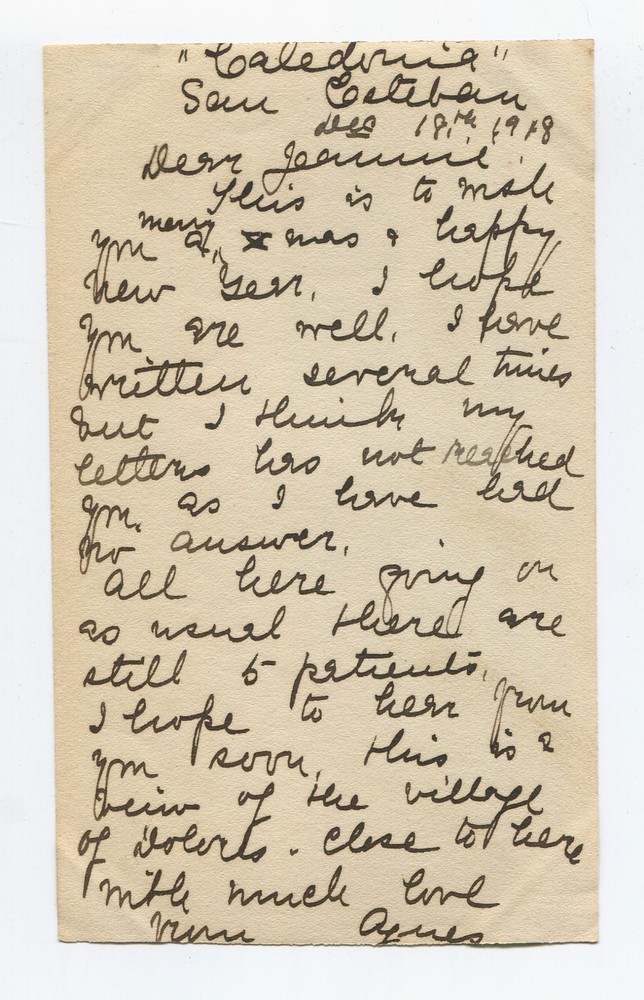 "Caledonia"
San Esteban
Dec 18th 1918
Dear Jeannie!
This is to wish
you a merry xmas & happy
new Year, I hope
you are well, I have
written several times
but I think my
letters has not reached
you, as I have had
no answer,
all here going on
as usual there are
still 5 patients,
I hope to hear from
you soon, this is a
veiw of the village
of Dolores. Close to here
with much love
from Agnes